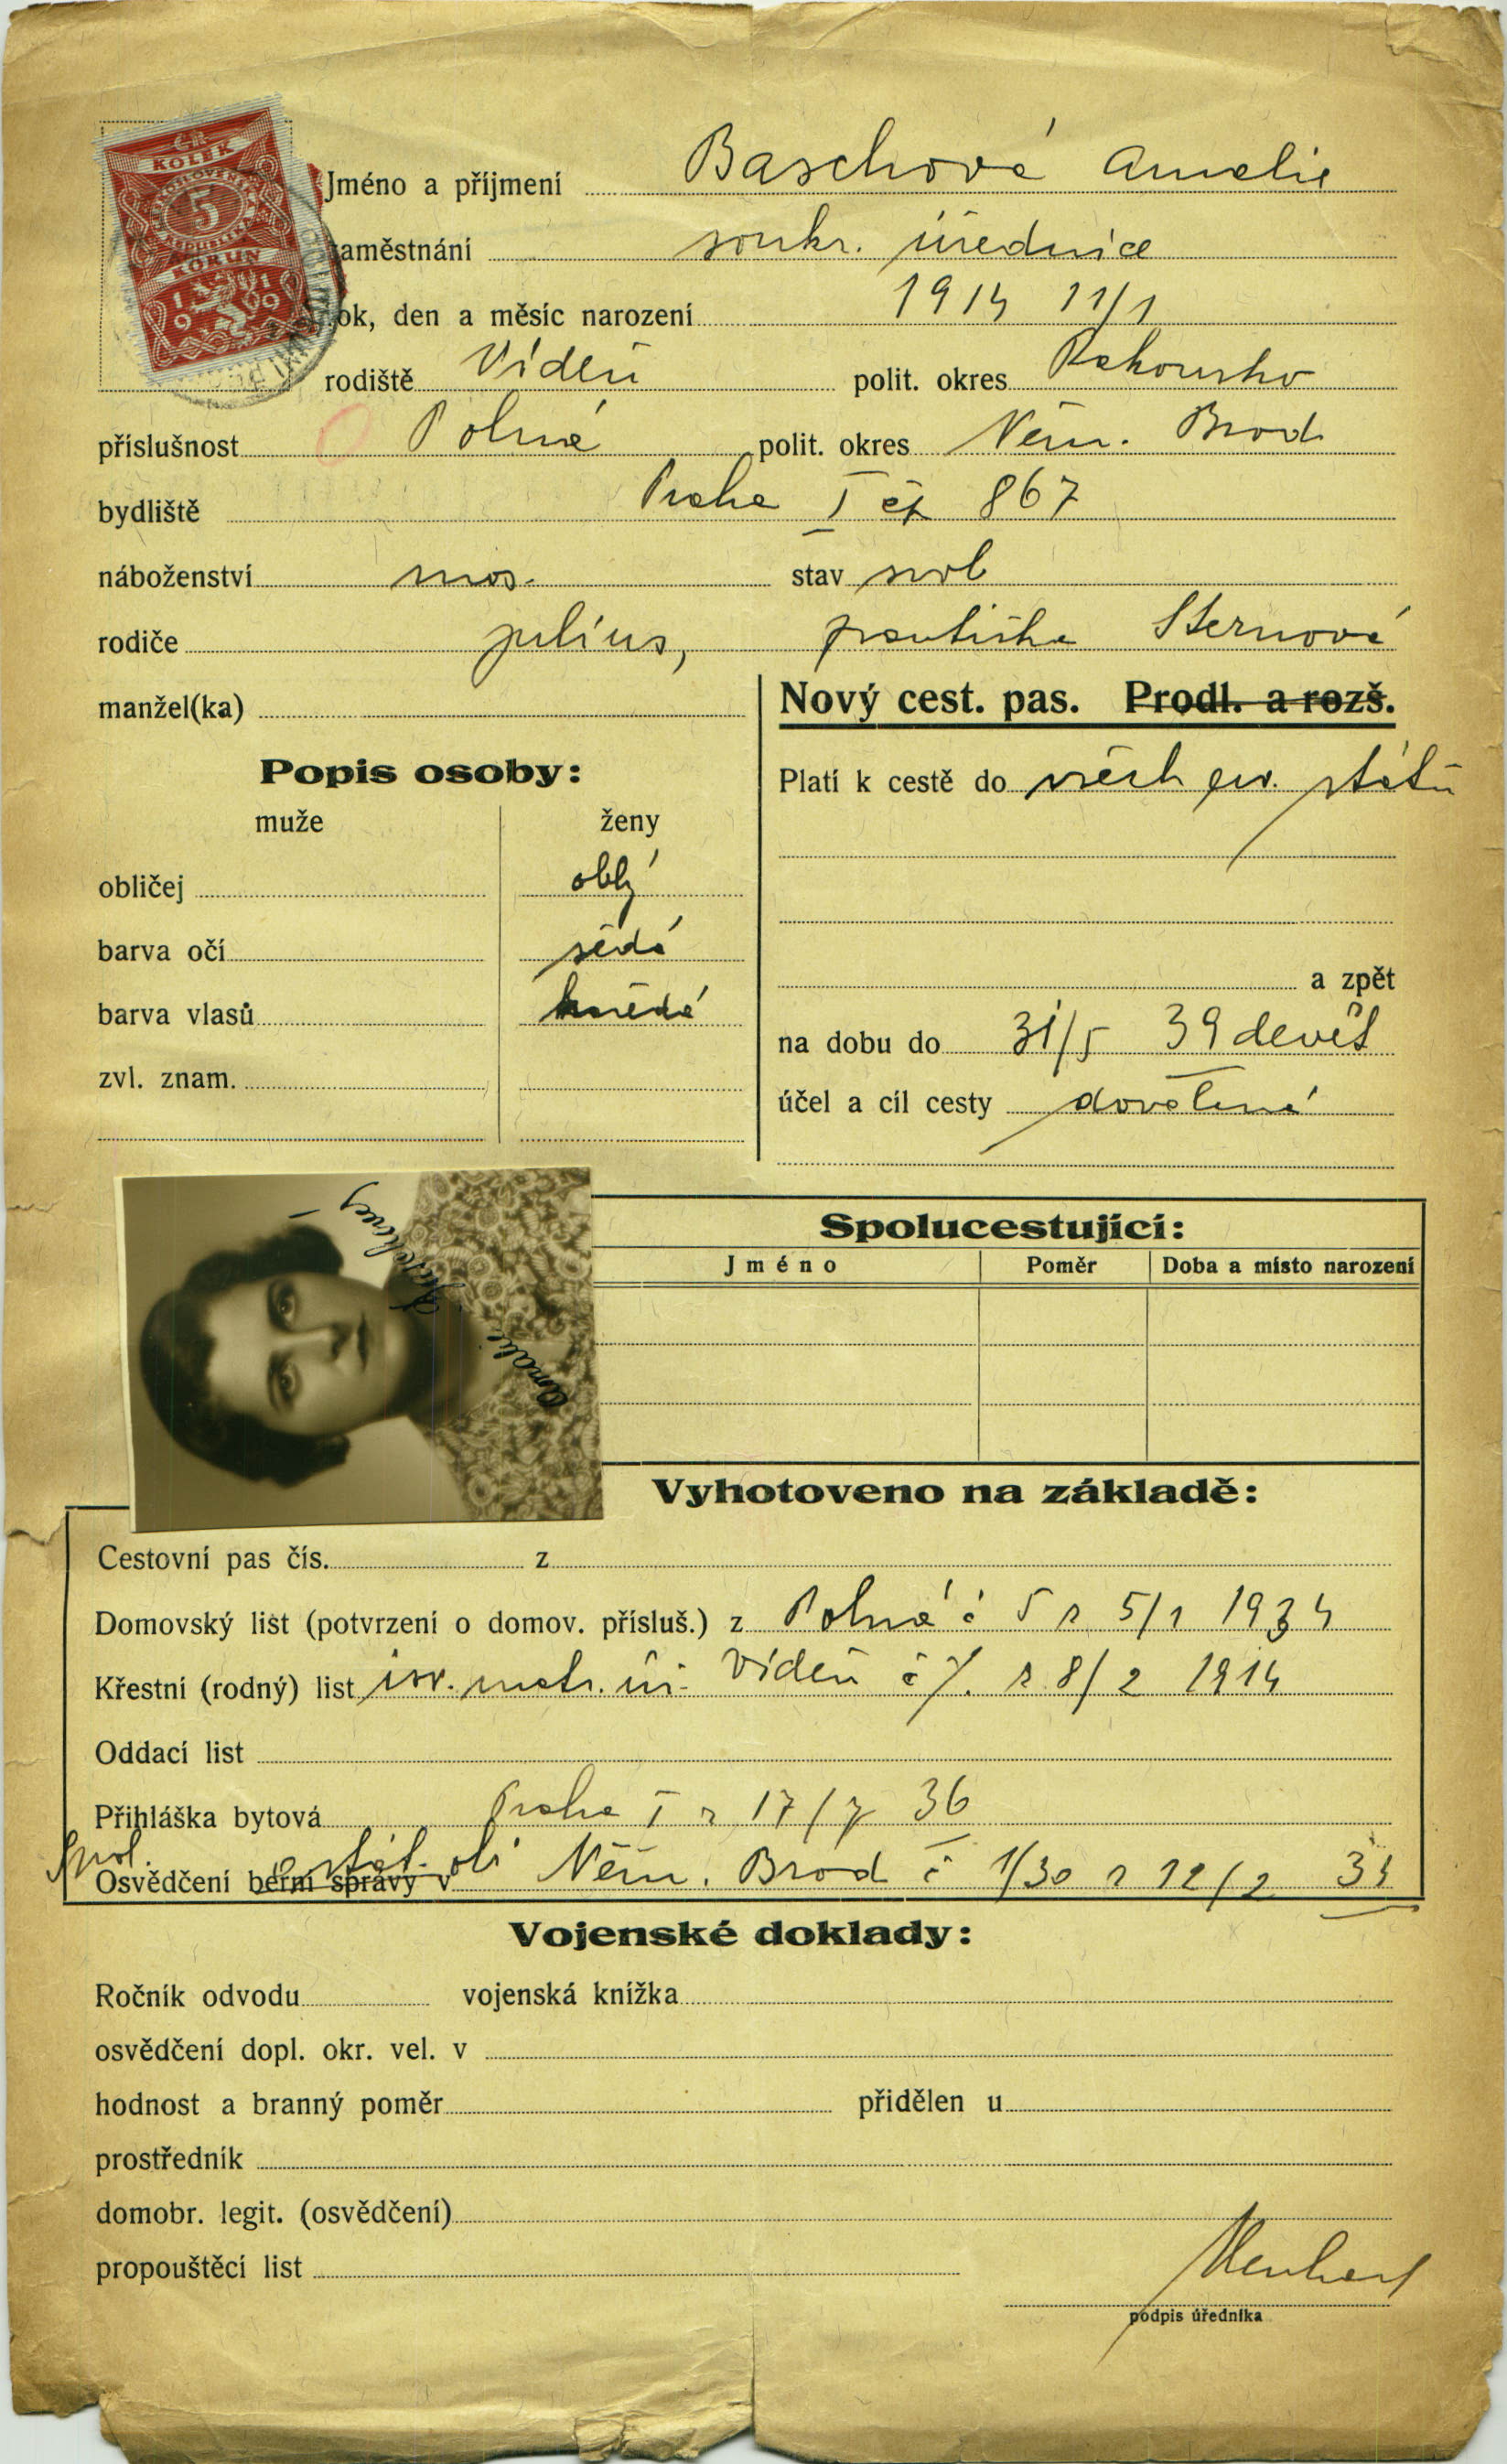 KOLEK
5
KORUN
1919
Jméno a příjmení Baschová Amelie
zaměstnání soukr. úřednice
rok, den a měsíc narození 1914 11/1
rodiště Vídeň polit. okres Rakousko
příslušnost Polná polit. okres Něm. Brod
bydliště Praha I čp 867
náboženství mos. stav svob
rodiče Julius, Františka Sternová
manžel(ka)
Nový cest. pas. Prodl. a rozš.
Popis osoby:
muže ženy
obličej oblý
barva očí šedá
barva vlasů hnědá
zvl. znam.
Platí k cestě do všech ev. států
a zpět
na dobu do 31/5 39 devět
účel a cíl cesty dovolená
Amalie Baschová
Spolucestující:
Jméno Poměr Doba a místo narození
Vyhotoveno na základě:
Cestovní pas čís. z
Domovský list (potvrzení o domov. přísluš.) z Polná č 5 z 5/1 1934
Křestní (rodný) list isr. matr. úř. Vídeň č /. z 8/2 1914
Oddací list
Přihláška bytová Praha I z 17/7 36
Osvědčení berní správy v Něm. Brod č 1/30 z 12/2 34
Vojenské doklady:
Ročník odvodu vojenská knížka
osvědčení dopl. okr. vel. v
hodnost a branný poměr přidělen u
prostředník
domobr. legit. (osvědčení)
propouštěcí list
podpis úředníka